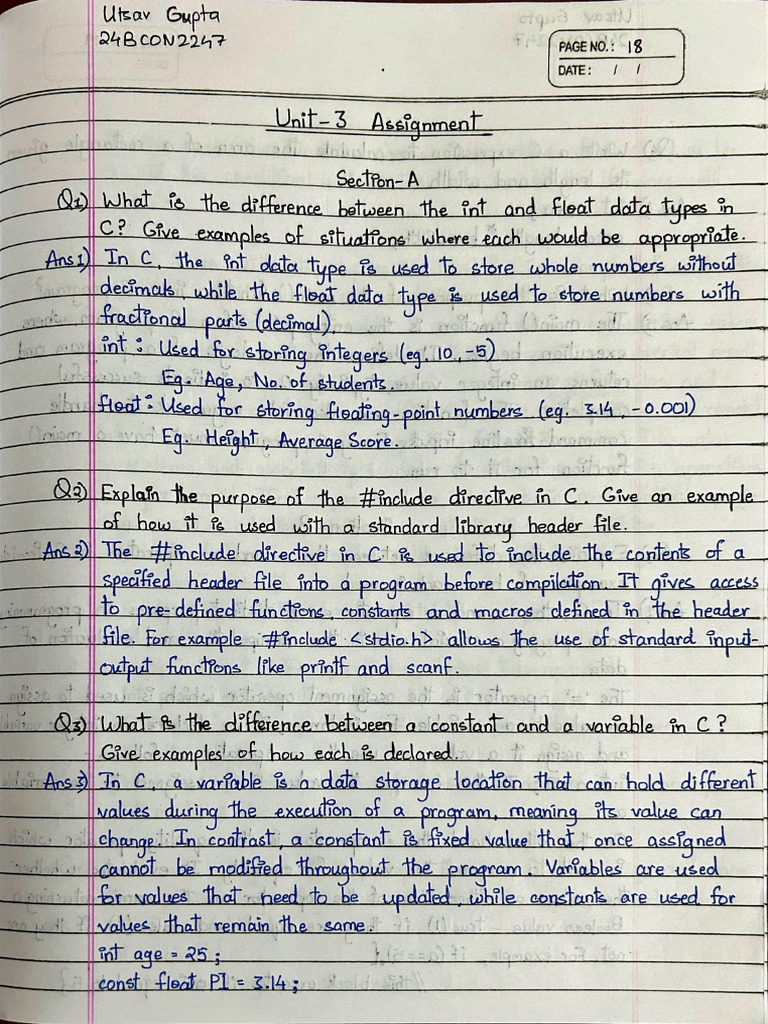 Utsav Gupta
24BCON2247
PAGE NO.: 18
DATE: / /
Unit-3 Assignment
Section-A
Q1) What is the difference between the int and float data types in
C? Give examples of situations where each would be appropriate.
Ans 1) In C, the int data type is used to store whole numbers without
decimals, while the float data type is used to store numbers with
fractional parts (decimal).
int : Used for storing integers (eg. 10, -5)
Eg. Age, No. of students.
float : Used for storing floating-point numbers (eg. 3.14, -0.001)
Eg. Height, Average Score.
Q2) Explain the purpose of the #include directive in C. Give an example
of how it is used with a standard library header file.
Ans 2) The #include directive in C is used to include the contents of a
specified header file into a program before compilation. It gives access
to pre-defined functions, constants and macros defined in the header
file. For example, #include <stdio.h> allows the use of standard input-
output functions like printf and scanf.
Q3) What is the difference between a constant and a variable in C?
Give examples of how each is declared.
Ans 3) In C, a variable is a data storage location that can hold different
values during the execution of a program, meaning its value can
change. In contrast, a constant is fixed value that, once assigned
cannot be modified throughout the program. Variables are used
for values that need to be updated, while constants are used for
values that remain the same.
int age = 25 ;
const float PI = 3.14 ;